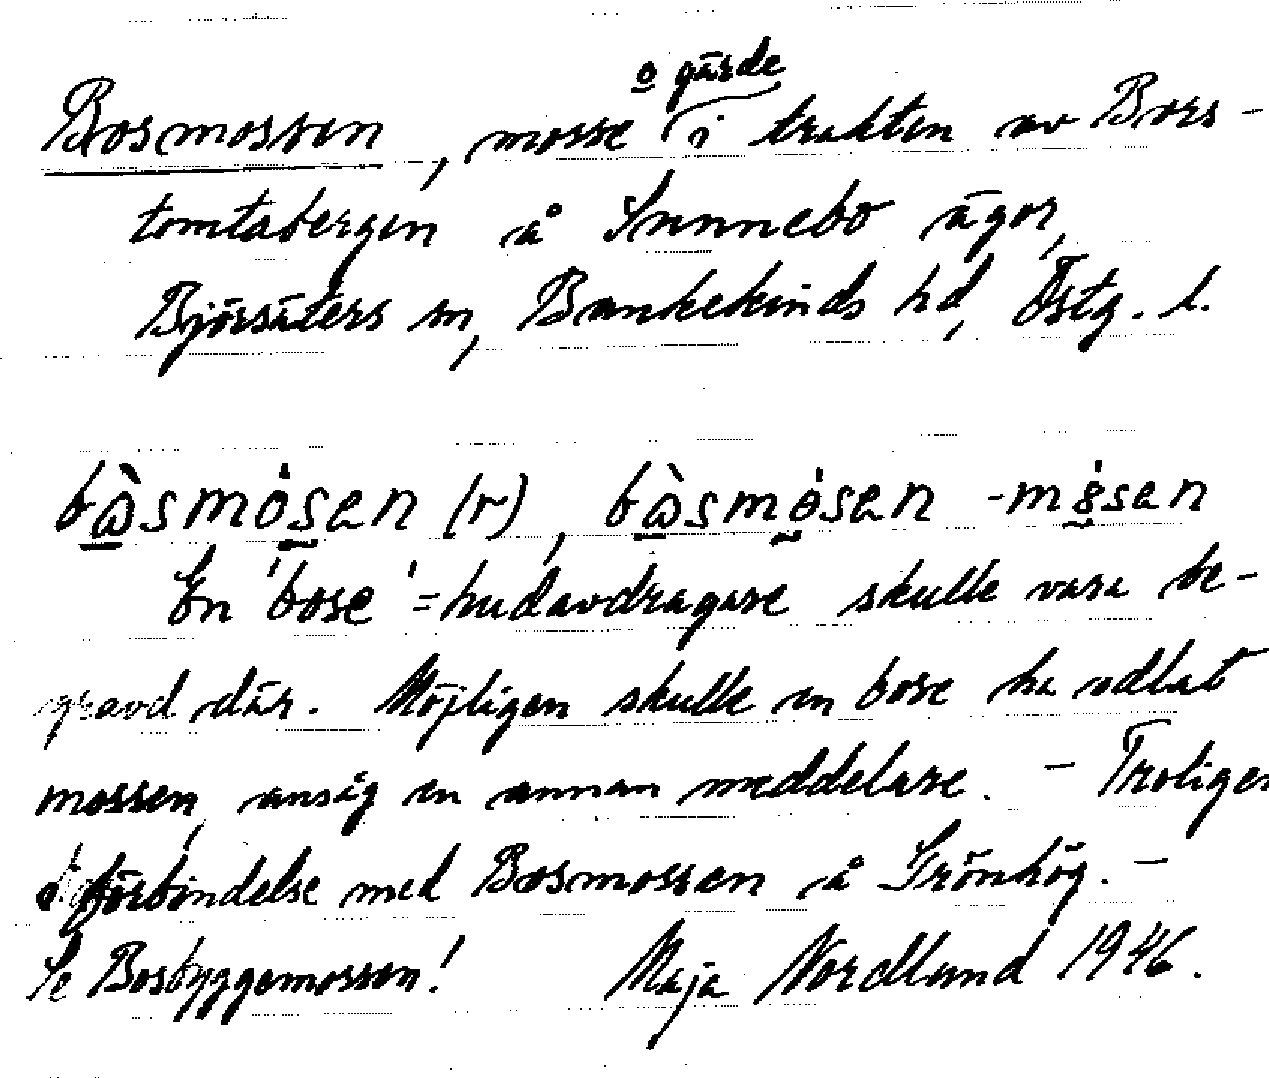 o gärde
Bosmossen, mosse i trakten av Bors-
tomtabergen å Sunnebo ägor,
Björsäters sn, Bankekinds hd, Östg. l.
bòsmòsen (r), bòsmòsen -mòsen
En 'bose' = hudavdragare skulle vara be-
gravd där. Möjligen skulle en bose ha odlat
mossen, ansåg en annan meddelare. – Troligen
förbindelse med Bosmossen å Grönhög. –
Se Bosbyggemossen! Maja Nordlund 1946.